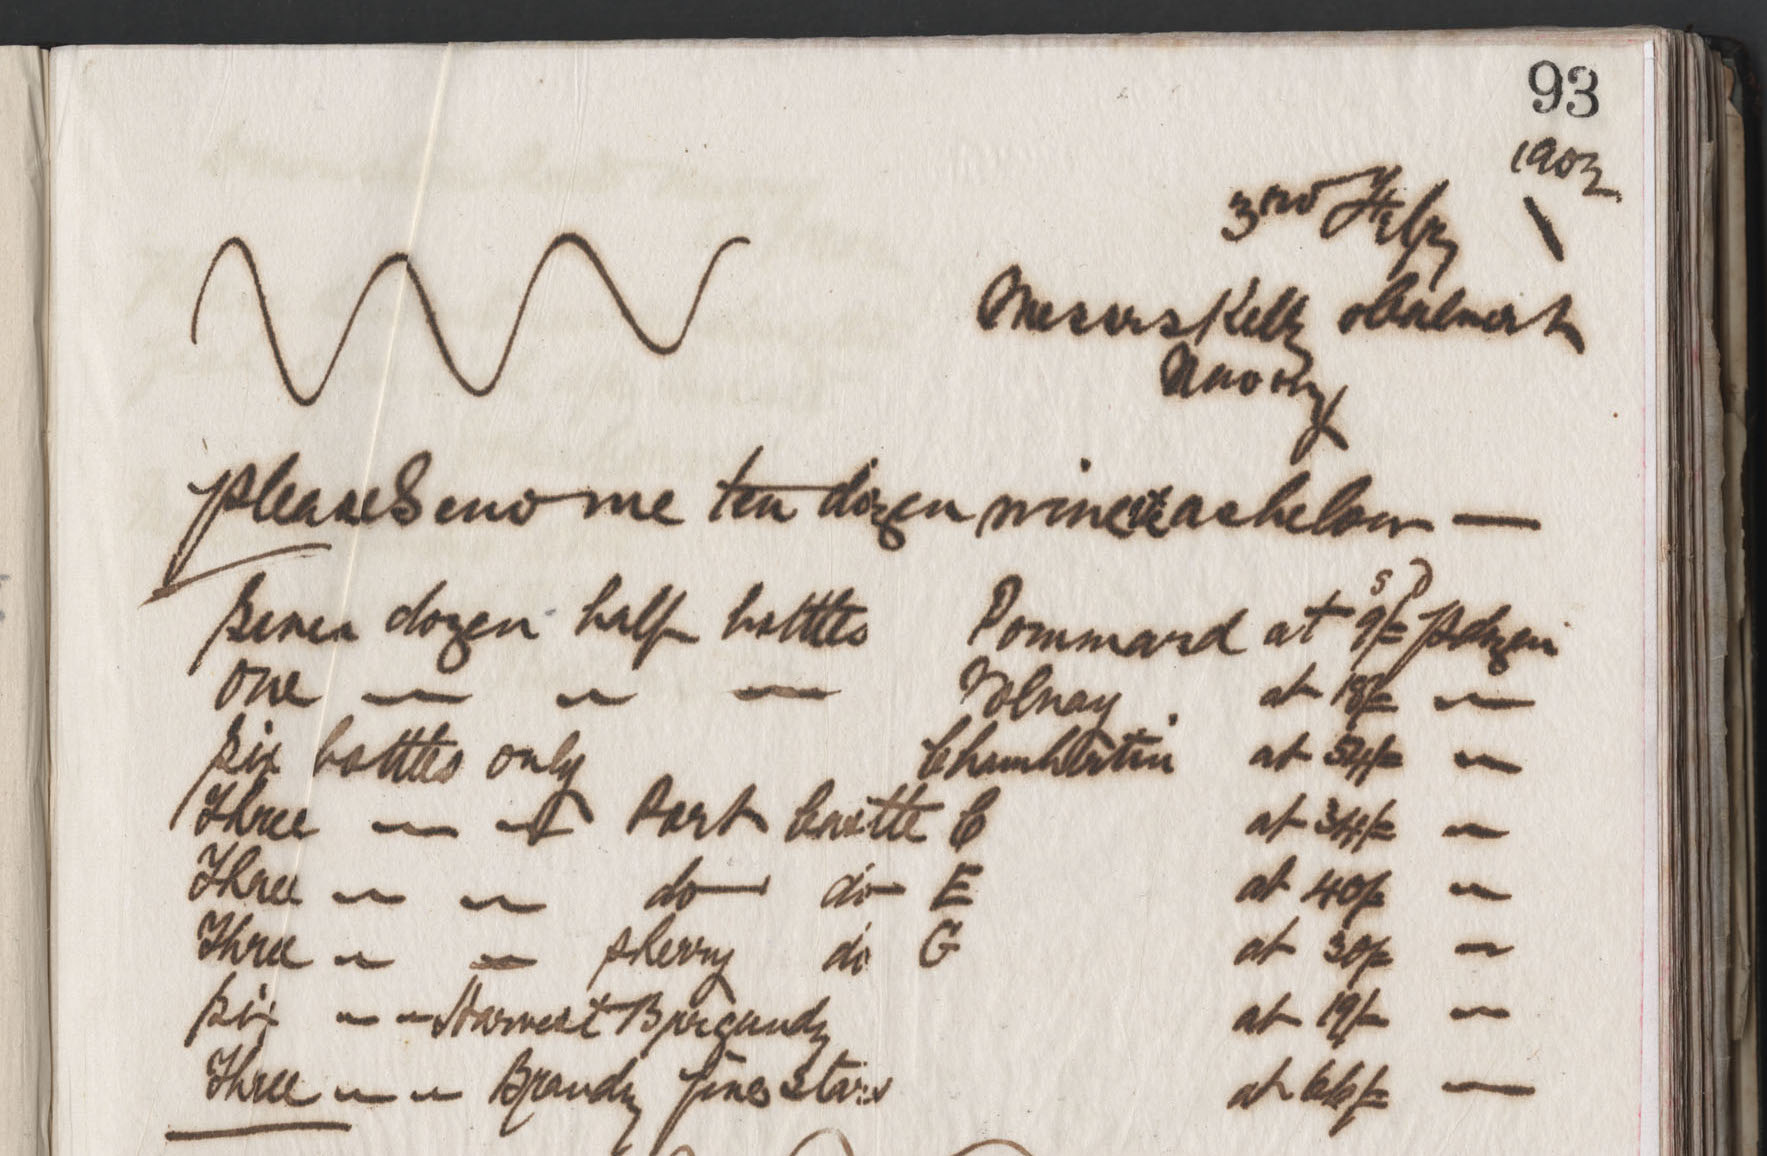 93
1902
3rd Feby
Messrs Kelly
Please Send me ten dozen wine etc as below —
Seven dozen half bottles Pommard at 9/= p dozen
s D
One — " — Volnay at 18/= "
Six bottles only Chambertin at 54/= "
Three " " Port Castle C at 34/= "
Three " " do do E at 40/= "
Three " " Sherry do G at 30/= "
Six " " Harvest Burgundy at 19/= "
Three " " Brandy fine stars at 66/= "